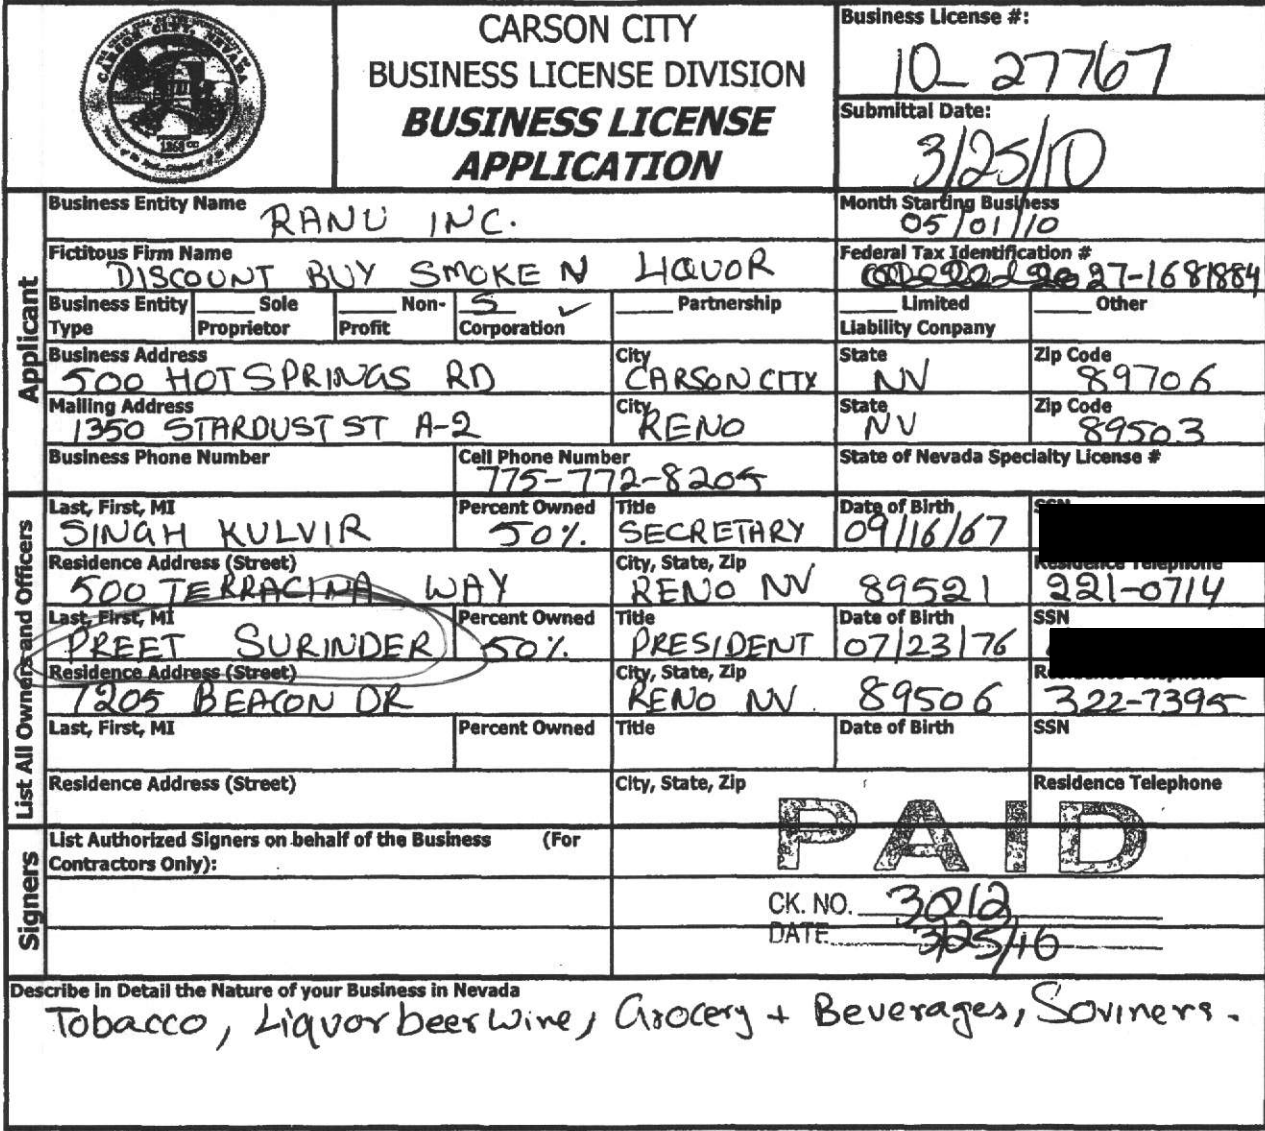 CARSON CITY, NEVADA
1868
CARSON CITY
BUSINESS LICENSE DIVISION
BUSINESS LICENSE
APPLICATION
Business License #:
10-27767
Submittal Date:
3/25/10
Applicant
Business Entity Name RANU INC.
Month Starting Business
05/01/10
Fictitous Firm Name
DISCOUNT BUY SMOKE N LIQUOR
Federal Tax Identification #
27-1681884
Business Entity Type
Sole Proprietor
Non-Profit
S ✓ Corporation
Partnership
Limited Liability Company
Other
Business Address
500 HOT SPRINGS RD
City
CARSON CITY
State
NV
Zip Code
89706
Mailing Address
1350 STARDUST ST A-2
City
RENO
State
NV
Zip Code
89503
Business Phone Number
Cell Phone Number
775-772-8205
State of Nevada Specialty License #
List All Owners and Officers
Last, First, MI
SINGH KULVIR
Percent Owned
50%
Title
SECRETARY
Date of Birth
09/16/67
SSN
Residence Address (Street)
500 TERRACINA WAY
City, State, Zip
RENO NV 89521
Residence Telephone
221-0714
Last, First, MI
PREET SURINDER
Percent Owned
50%
Title
PRESIDENT
Date of Birth
07/23/76
SSN
Residence Address (Street)
7205 BEACON DR
City, State, Zip
RENO NV. 89506
322-7395
Last, First, MI
Percent Owned
Title
Date of Birth
SSN
Residence Address (Street)
City, State, Zip
Residence Telephone
Signers
List Authorized Signers on behalf of the Business (For
Contractors Only):
PAID
CK. NO. 3012
DATE 3/25/10
Describe in Detail the Nature of your Business in Nevada
Tobacco, Liquor beer wine, Grocery + Beverages, Soviners.